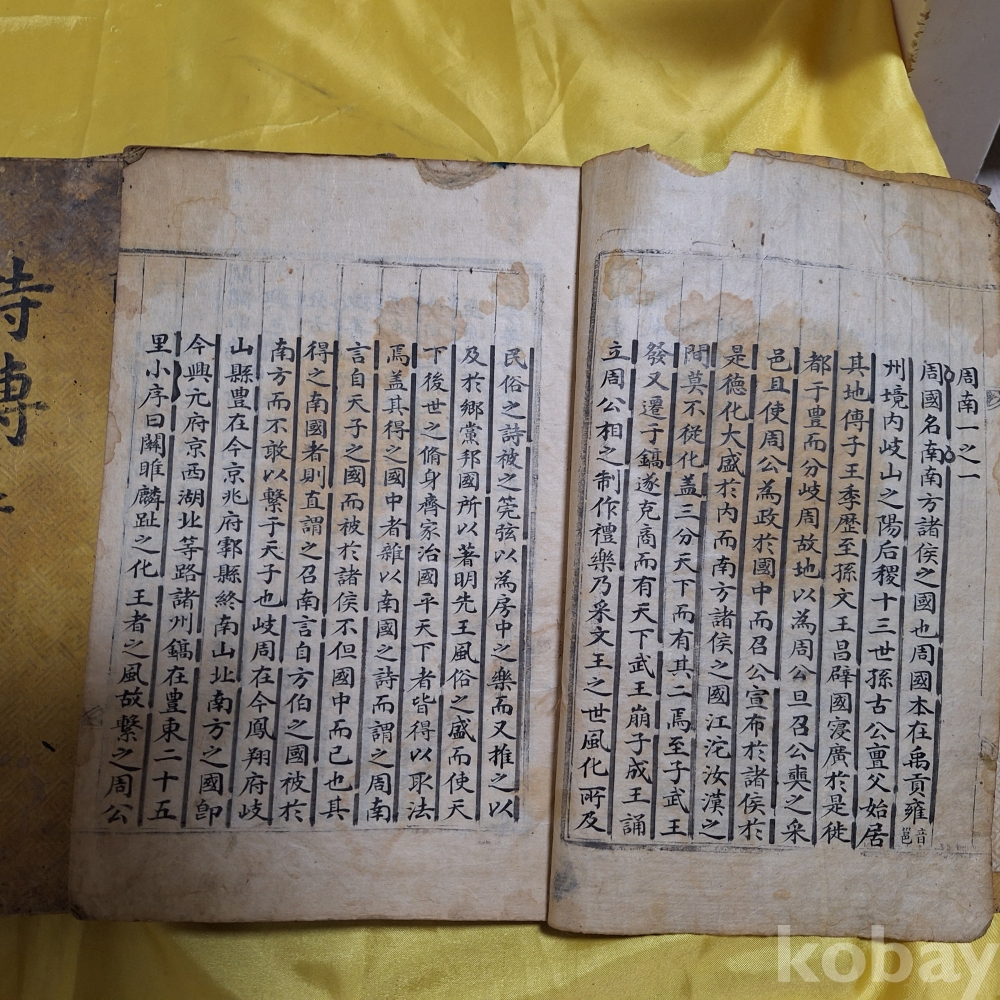 周南一之一
周國名南南方諸侯之國也周國本在禹貢雍音邕
州境內岐山之陽后稷十三世孫古公亶父始居
其地傳子王季歷至孫文王昌辟國寖廣於是徙
都于豊而分岐周故地以為周公旦召公奭之采
邑且使周公為政於國中而召公宣布於諸侯於
是德化大盛於內而南方諸侯之國江沱汝漢之
間莫不從化盖三分天下而有其二焉至子武王
發又遷于鎬遂克商而有天下武王崩子成王誦
立周公相之制作禮樂乃采文王之世風化所及
民俗之詩被之筦弦以為房中之樂而又推之以
及於鄉黨邦國所以著明先王風俗之盛而使天
下後世之脩身齊家治國平天下者皆得以取法
焉盖其得之國中者雜以南國之詩而謂之周南
言自天子之國而被於諸侯不但國中而已也其
得之南國者則直謂之召南言自方伯之國被於
南方而不敢以繫于天子也岐周在今鳳翔府岐
山縣豊在今京兆府鄠縣終南山北南方之國卽
今興元府京西湖北等路諸州鎬在豊東二十五
里小序曰關雎麟趾之化王者之風故繫之周公
詩傳
kobay